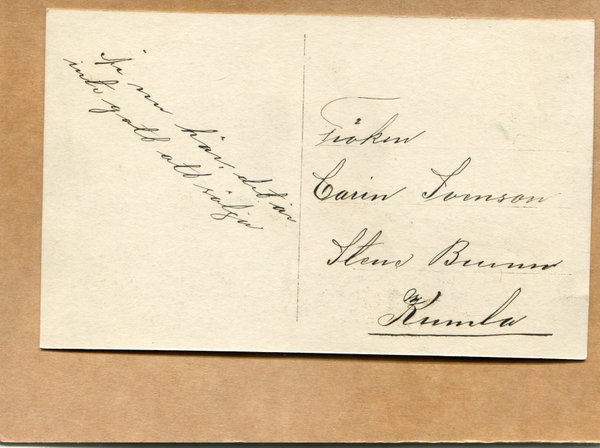 Se nu här, det är
inte godt att välja
Fröken
Carin Svenson
Stene Brunn
Kumla